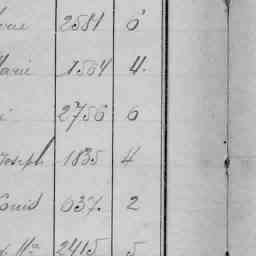 2581 6
Marie 1564 4.
2756 6
Joseph 1835 4
Louis 637. 2
Me 2415 5